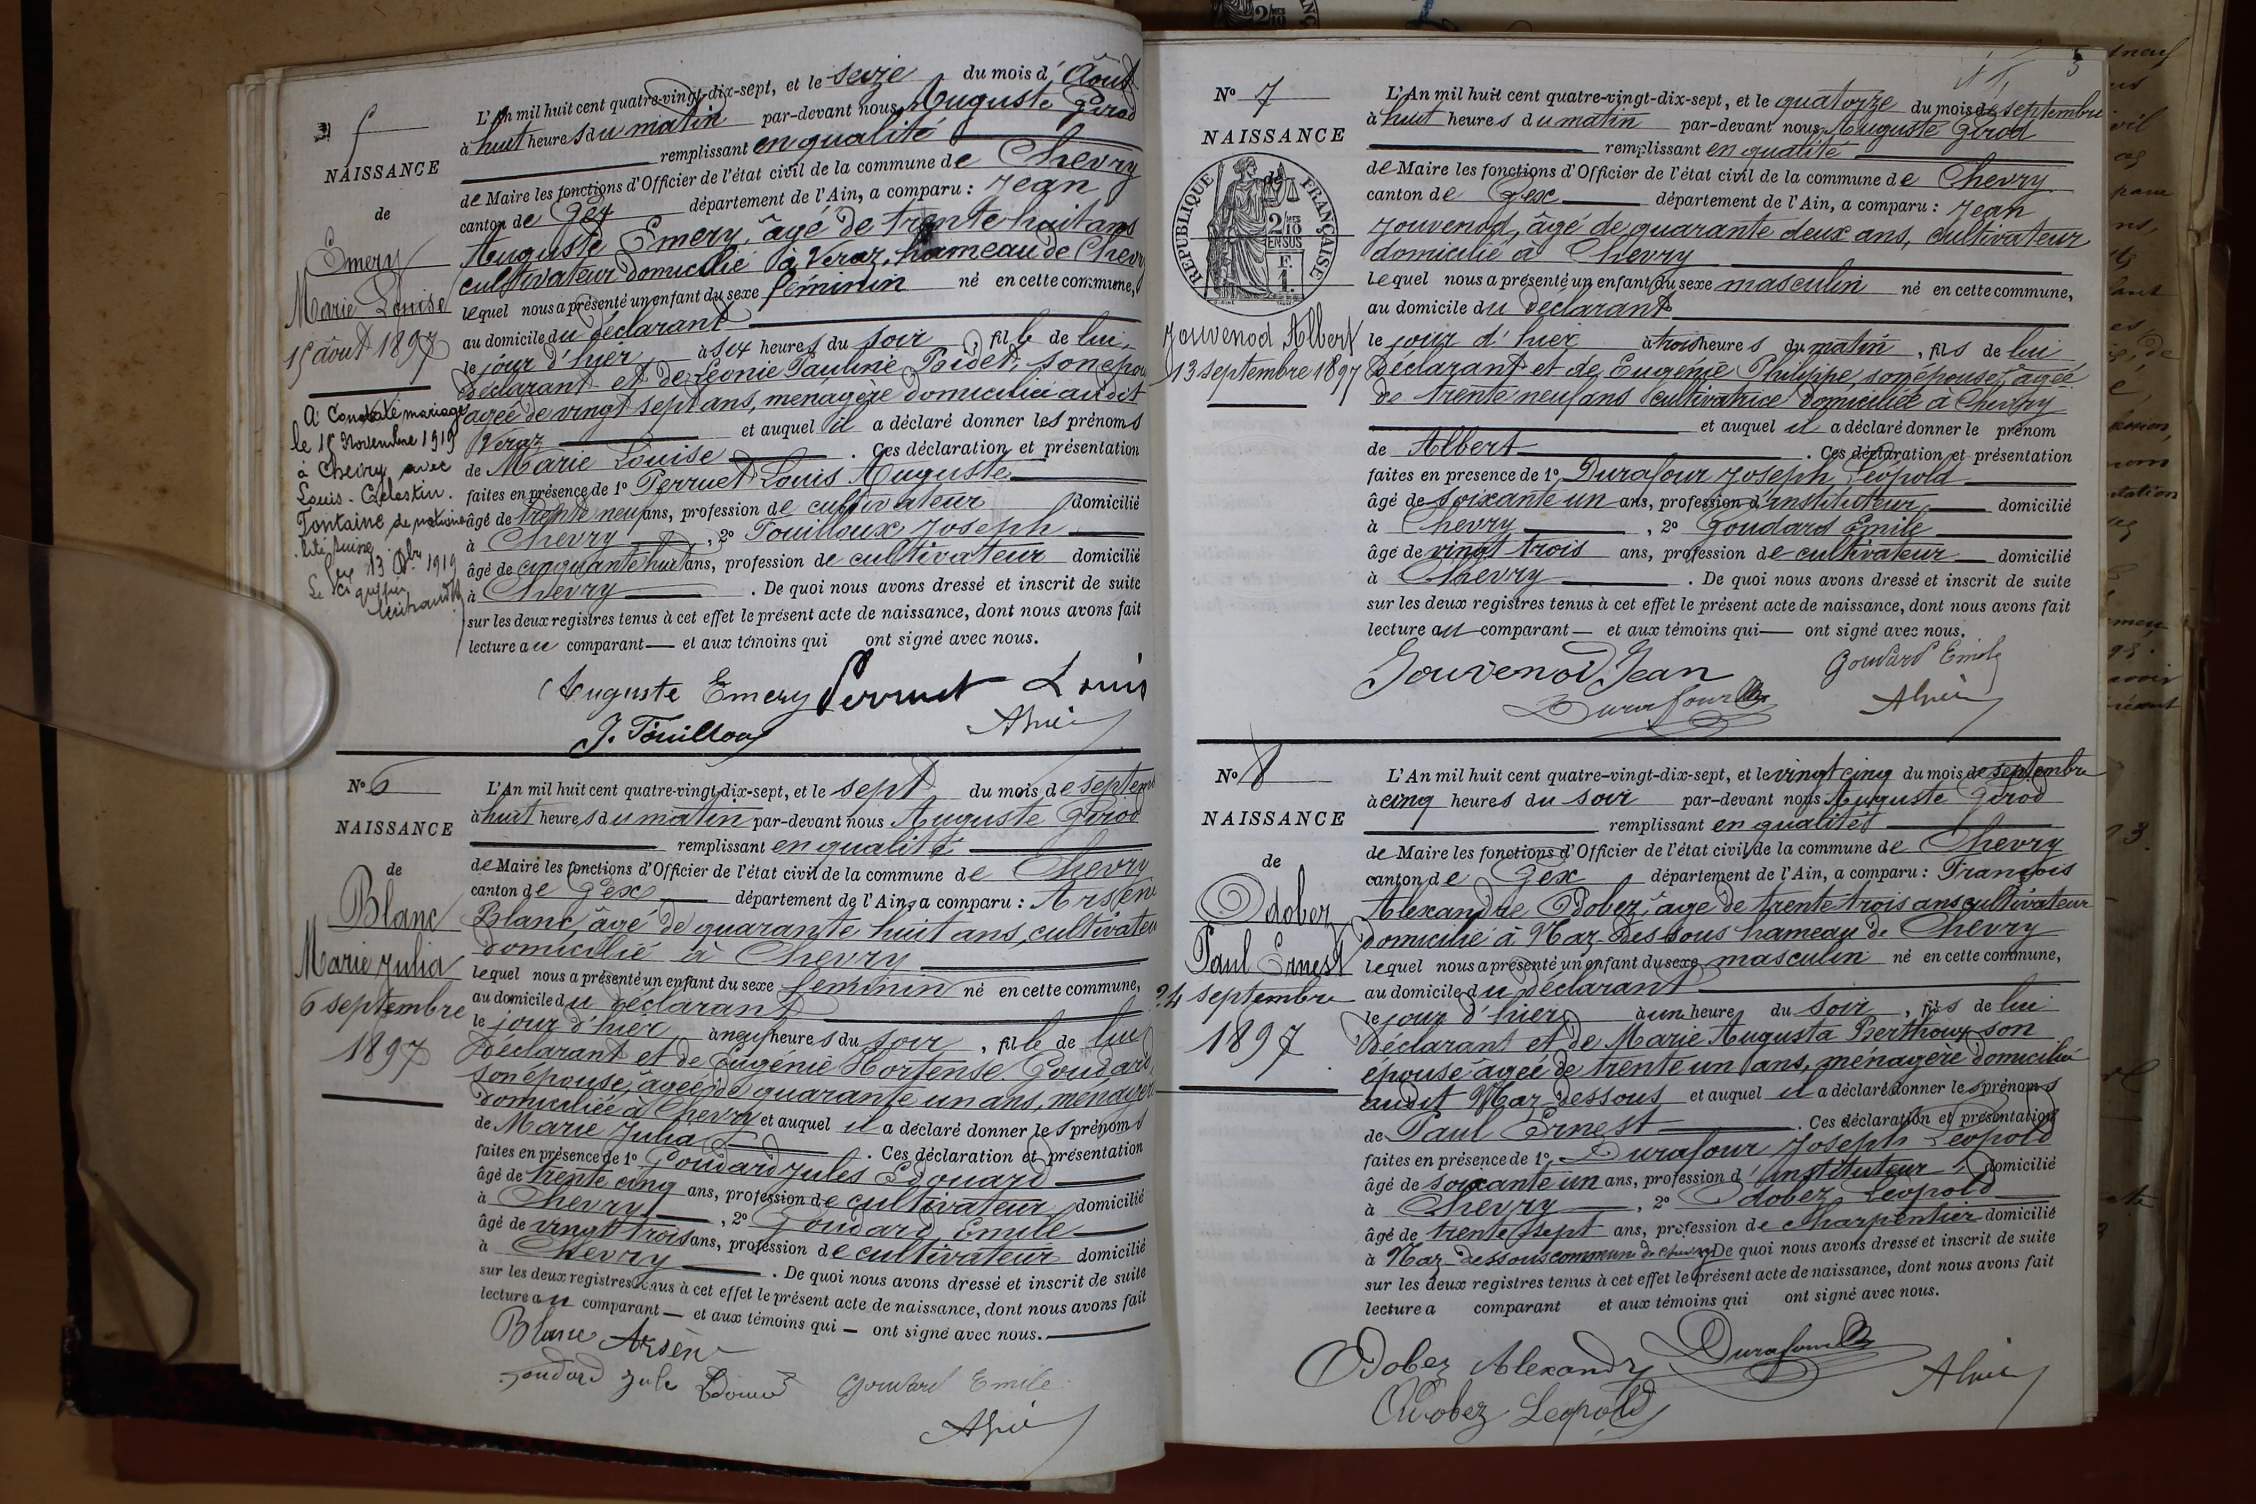 N° 5
NAISSANCE
de
Emery
Marie Louise
15 août 1897
A Contracté mariage
le 15 Novembre 1919
à Chevry avec
Louis-Célestin
Fontaine de nationa
lité suisse.
13 1919
Le greffier
L'An mil huit cent quatre-vingt-dix-sept, et le seize du mois d'Août
à huit heures du matin par-devant nous Auguste Girod
remplissant en qualité
de Maire les fonctions d'Officier de l'état civil de la commune de Chevry
canton de Gex département de l'Ain, a comparu : Jean
Auguste Emery, âgé de trente huit ans
cultivateur domicilié à Veraz, hameau de Chevry
lequel nous a présenté un enfant du sexe féminin né en cette commune,
au domicile du déclarant
le jour d'hier à six heures du soir, fille de lui
déclarant et de Léonie Pauline Bidet, son épou
âgée de vingt sept ans, ménagère domiciliée au dit
Veraz et auquel il a déclaré donner les prénoms
de Marie Louise. Ces déclaration et présentation
faites en présence de 1° Perruet Louis Auguste
âgé de trente neuf ans, profession de cultivateur domicilié
à Chevry, 2° Fouilloux Joseph
âgé de cinquante huit ans, profession de cultivateur domicilié
à Chevry. De quoi nous avons dressé et inscrit de suite
sur les deux registres tenus à cet effet le présent acte de naissance, dont nous avons fait
lecture au comparant et aux témoins qui ont signé avec nous.
Auguste Emery Perruet Louis
J. Fouilloux
N° 6
NAISSANCE
de
Blanc
Marie Julia
6 septembre
1897
L'An mil huit cent quatre-vingt-dix-sept, et le sept du mois de septem
à huit heures du matin par-devant nous Auguste Girod
remplissant en qualité
de Maire les fonctions d'Officier de l'état civil de la commune de Chevry
canton de Gex département de l'Ain, a comparu : Arsène
Blanc, âgé de quarante huit ans, cultivateu
domicilié à Chevry
lequel nous a présenté un enfant du sexe féminin né en cette commune,
au domicile du déclarant
le jour d'hier à neuf heures du soir, fille de lui
déclarant et de Eugénie Hortense Goudard,
son épouse, âgée de quarante un ans, ménagère
domiciliée à Chevry et auquel il a déclaré donner les prénoms
de Marie Julia. Ces déclaration et présentation
faites en présence de 1° Goudard Jules Edouard
âgé de trente cinq ans, profession de cultivateur domicilié
à Chevry, 2° Goudard Emile
âgé de vingt trois ans, profession de cultivateur domicilié
à Chevry. De quoi nous avons dressé et inscrit de suite
sur les deux registres tenus à cet effet le présent acte de naissance, dont nous avons fait
lecture au comparant — et aux témoins qui — ont signé avec nous.
Blanc Arsène
Goudard Jule Edouard Goudard Emile
5
N° 7
NAISSANCE
de
RÉPUBLIQUE FRANÇAISE
2/10
EN SUS
F.
1.
Jouvenod Albert
13 septembre 1897
L'An mil huit cent quatre-vingt-dix-sept, et le quatorze du mois de septembre
à huit heures du matin par-devant nous Auguste Girod
remplissant en qualité
de Maire les fonctions d'Officier de l'état civil de la commune de Chevry
canton de Gex département de l'Ain, a comparu : Jean
Jouvenod, âgé de quarante deux ans, cultivateur
domicilié à Chevry
lequel nous a présenté un enfant du sexe masculin né en cette commune,
au domicile du déclarant
le jour d'hier à trois heures du matin, fils de lui
déclarant et de Eugénie Philippe, son épouse, âgée
de trente neuf ans cultivatrice domiciliée à Chevry
et auquel il a déclaré donner le prénom
de Albert. Ces déclaration et présentation
faites en presence de 1° Durafour Joseph Léopold
âgé de soixante un ans, profession d'instituteur domicilié
à Chevry, 2° Goudard Emile
âgé de vingt trois ans, profession de cultivateur domicilié
à Chevry. De quoi nous avons dressé et inscrit de suite
sur les deux registres tenus à cet effet le présent acte de naissance, dont nous avons fait
lecture au comparant — et aux témoins qui — ont signé avec nous.
Jouvenod Jean Goudard Emile
Durafour
N° 8
NAISSANCE
de
Odobez
Paul Ernest
24 septembre
1897
L'An mil huit cent quatre-vingt-dix-sept, et le vingt cinq du mois de septembre
à cinq heures du soir par-devant nous Auguste Girod
remplissant en qualités
de Maire les fonctions d'Officier de l'état civil de la commune de Chevry
canton de Gex département de l'Ain, a comparu : François
Alexandre Odobez, âge de trente trois ans cultivateur
domicilié à Naz-Dessous hameau de Chevry
lequel nous a présenté un enfant du sexe masculin né en cette commune,
au domicile du déclarant
le jour d'hier à un heure du soir, fils de lui
déclarant et de Marie Augusta Berthoux son
épouse âgée de trente un ans, ménagère domiciliée
audit Naz-Dessous et auquel il a déclaré donner les prénoms
de Paul Ernest. Ces déclaration et présentation
faites en présence de 1° Durafour Joseph Léopold
âgé de soixante un ans, profession d'instituteur domicilié
à Chevry, 2° Odobez Léopold
âgé de trente sept ans, profession de charpentier domicilié
à Naz-Dessous commune de Chevry De quoi nous avons dressé et inscrit de suite
sur les deux registres tenus à cet effet le présent acte de naissance, dont nous avons fait
lecture a comparant et aux témoins qui ont signé avec nous.
Odobez Alexandre Durafour
Odobez Léopold